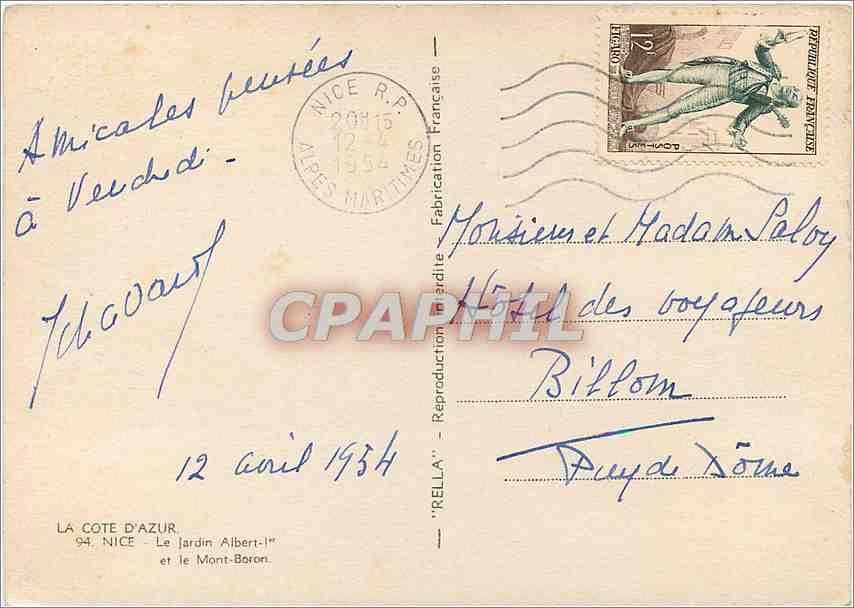 Amicales pensées
à Vendredi -
12 avril 1954
LA COTE D'AZUR.
94. NICE - Le Jardin Albert-Ier
et le Mont-Boron.
NICE R.P.
20H15
12-4
1954
ALPES MARITIMES
"RELLA" - Reproduction Interdite - Fabrication Française -
RÉPUBLIQUE FRANÇAISE
POSTES
12F
FIGARO
Monsieur et Madam Saloy
Hôtel des voyageurs
Billom
Puy de Dôme
CPAPHIL